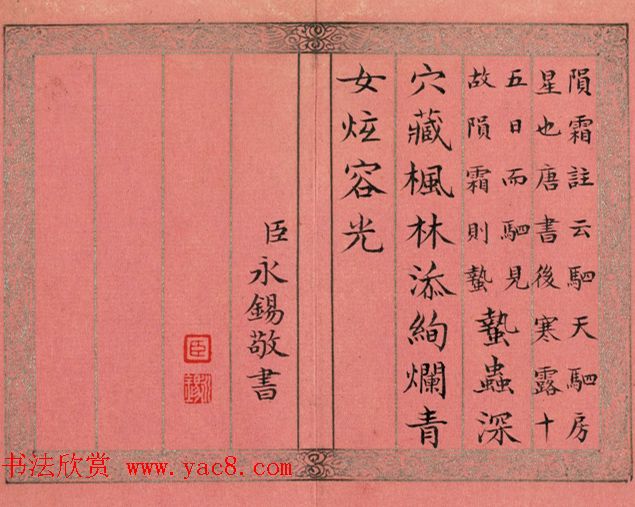 隕霜註云駟天駟房
星也唐書後寒露十
五日而駟見
故隕霜則蟄
蟄蟲深
穴藏楓林添絢爛青
女炫容光
臣永錫敬書
臣
书法欣赏 www.yac8.com